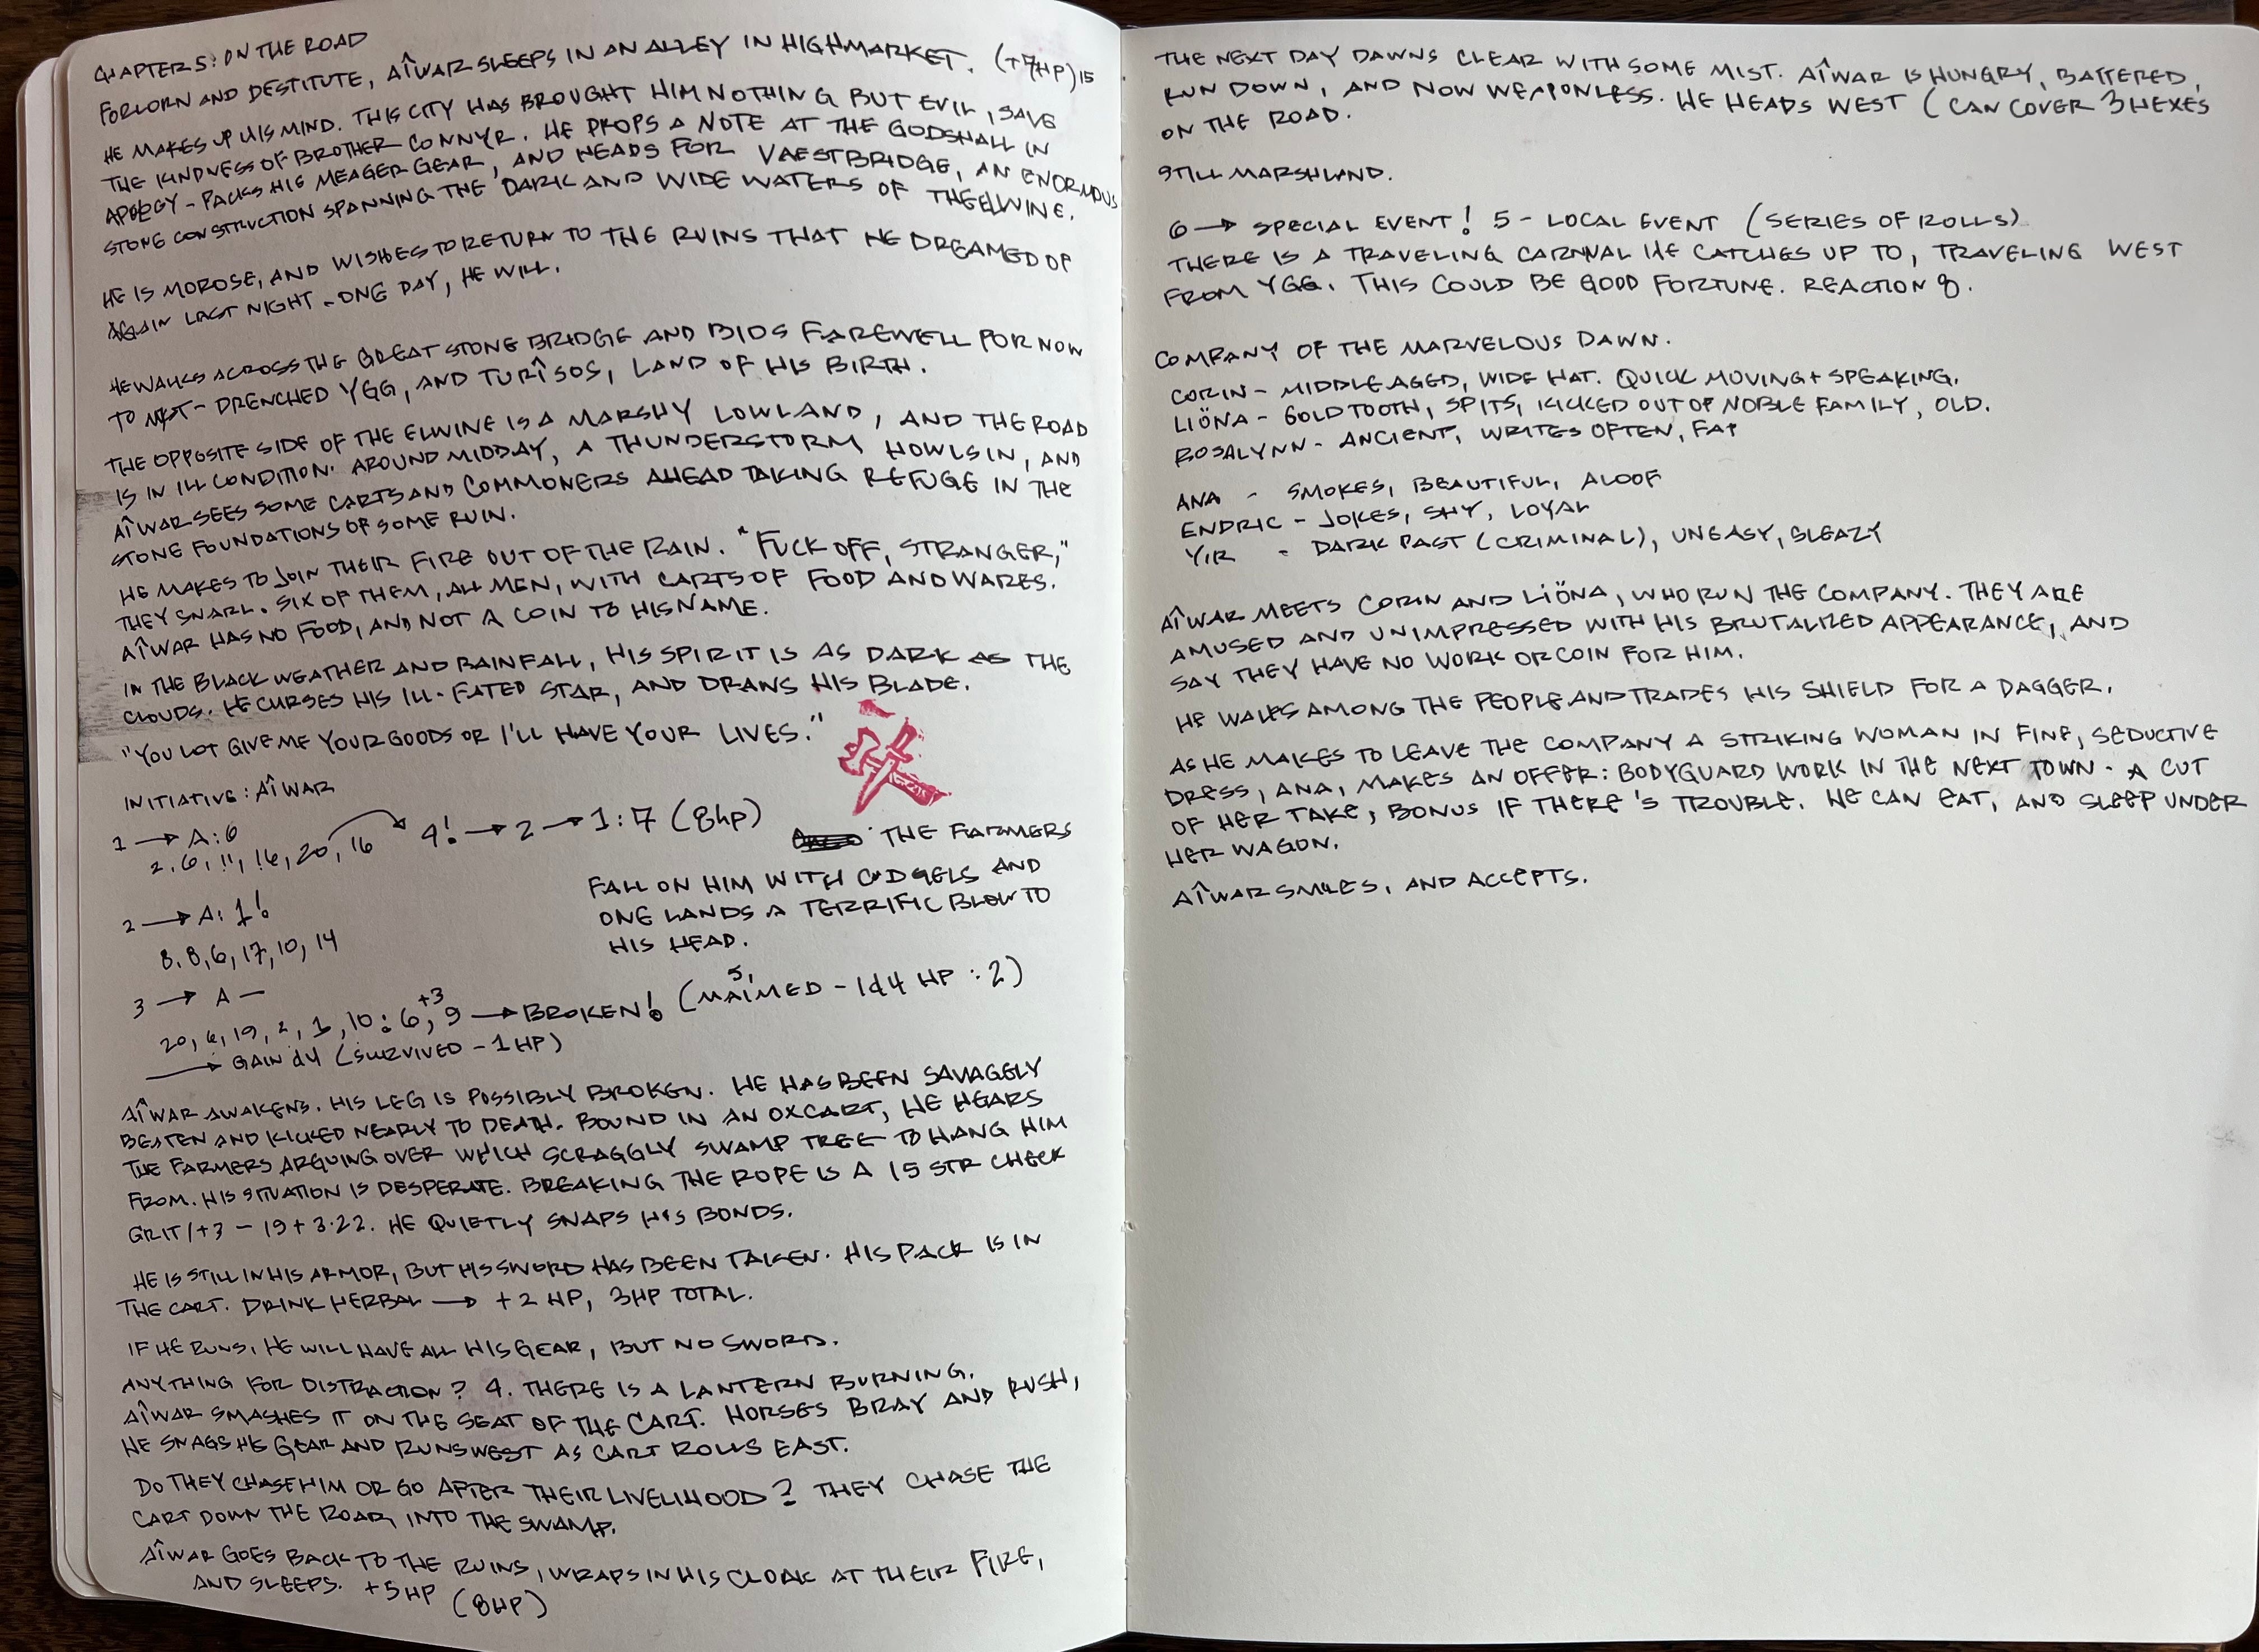 CHAPTER 5: ON THE ROAD
FORLORN AND DESTITUTE, AÎWAR SLEEPS IN AN ALLEY IN HIGHMARKET. (+7HP) 15
HE MAKES UP HIS MIND. THIS CITY HAS BROUGHT HIM NOTHING BUT EVIL, SAVE
THE KINDNESS OF BROTHER CONNYR. HE DROPS A NOTE AT THE GODSHALL IN
APOLOGY - PACKS HIS MEAGER GEAR, AND HEADS FOR VAESTBRIDGE, AN ENORMOUS
STONE CONSTRUCTION SPANNING THE DARK AND WIDE WATERS OF THE ELWINE.
HE IS MOROSE, AND WISHES TO RETURN TO THE RUINS THAT HE DREAMED OF
AGAIN LAST NIGHT - ONE DAY, HE WILL.
HE WALKS ACROSS THE GREAT STONE BRIDGE AND BIDS FAREWELL FOR NOW
TO MIST-DRENCHED YGG, AND TURÎSOS, LAND OF HIS BIRTH.
THE OPPOSITE SIDE OF THE ELWINE IS A MARSHY LOWLAND, AND THE ROAD
IS IN ILL CONDITION. AROUND MIDDAY, A THUNDERSTORM HOWLS IN, AND
AÎWAR SEES SOME CARTS AND COMMONERS AHEAD TAKING REFUGE IN THE
STONE FOUNDATIONS OF SOME RUIN.
HE MAKES TO JOIN THEIR FIRE OUT OF THE RAIN. "FUCK OFF, STRANGER,"
THEY SNARL. SIX OF THEM, ALL MEN, WITH CARTS OF FOOD AND WARES.
AÎWAR HAS NO FOOD, AND NOT A COIN TO HIS NAME.
IN THE BLACK WEATHER AND RAINFALL, HIS SPIRIT IS AS DARK AS THE
CLOUDS. HE CURSES HIS ILL-FATED STAR, AND DRAWS HIS BLADE.
"YOU LOT GIVE ME YOUR GOODS OR I'LL HAVE YOUR LIVES."
INITIATIVE: AÎWAR
1 → A: 6
2, 6, 11, 16, 20, 16 → 4! → 2 → 1: 7 (8hp)
THE FARMERS
FALL ON HIM WITH CUDGELS AND
ONE LANDS A TERRIFIC BLOW TO
HIS HEAD.
2 → A: 1!
8, 8, 6, 17, 10, 14
3 → A —
20, 6, 19, 2, 1, 10: 6, +3 9 → BROKEN! (5, MAIMED - 1d4 HP: 2)
→ GAIN d4 (SURVIVED - 1 HP)
AÎWAR AWAKENS. HIS LEG IS POSSIBLY BROKEN. HE HAS BEEN SAVAGELY
BEATEN AND KICKED NEARLY TO DEATH. BOUND IN AN OXCART, HE HEARS
THE FARMERS ARGUING OVER WHICH SCRAGGLY SWAMP TREE TO HANG HIM
FROM. HIS SITUATION IS DESPERATE. BREAKING THE ROPE IS A 15 STR CHECK
GRIT/+3 - 19+3·22. HE QUIETLY SNAPS HIS BONDS.
HE IS STILL IN HIS ARMOR, BUT HIS SWORD HAS BEEN TAKEN. HIS PACK IS IN
THE CART. DRINK HERBAL → +2 HP, 3HP TOTAL.
IF HE RUNS, HE WILL HAVE ALL HIS GEAR, BUT NO SWORD.
ANYTHING FOR DISTRACTION? 4. THERE IS A LANTERN BURNING.
AÎWAR SMASHES IT ON THE SEAT OF THE CART. HORSES BRAY AND RUSH,
HE SNAGS HIS GEAR AND RUNS WEST AS CART ROLLS EAST.
DO THEY CHASE HIM OR GO AFTER THEIR LIVELIHOOD? THEY CHASE THE
CART DOWN THE ROAD, INTO THE SWAMP.
AÎWAR GOES BACK TO THE RUINS, WRAPS IN HIS CLOAK AT THEIR FIRE,
AND SLEEPS. +5HP (8HP)
THE NEXT DAY DAWNS CLEAR WITH SOME MIST. AÎWAR IS HUNGRY, BATTERED,
RUN DOWN, AND NOW WEAPONLESS. HE HEADS WEST (CAN COVER 3 HEXES
ON THE ROAD.
STILL MARSHLAND.
6 → SPECIAL EVENT! 5 - LOCAL EVENT (SERIES OF ROLLS)
THERE IS A TRAVELING CARNIVAL HE CATCHES UP TO, TRAVELING WEST
FROM YGG. THIS COULD BE GOOD FORTUNE. REACTION 8.
COMPANY OF THE MARVELOUS DAWN.
CORIN - MIDDLE AGED, WIDE HAT. QUICK MOVING + SPEAKING.
LIÖNA - GOLD TOOTH, SPITS, KICKED OUT OF NOBLE FAMILY, OLD.
ROSALYNN - ANCIENT, WRITES OFTEN, FAT
ANA - SMOKES, BEAUTIFUL, ALOOF
ENDRIC - JOKES, SHY, LOYAL
YIR - DARK PAST (CRIMINAL), UNEASY, SLEAZY
AÎWAR MEETS CORIN AND LIÖNA, WHO RUN THE COMPANY. THEY ARE
AMUSED AND UNIMPRESSED WITH HIS BRUTALIZED APPEARANCE, AND
SAY THEY HAVE NO WORK OR COIN FOR HIM.
HE WALKS AMONG THE PEOPLE AND TRADES HIS SHIELD FOR A DAGGER.
AS HE MAKES TO LEAVE THE COMPANY A STRIKING WOMAN IN FINE, SEDUCTIVE
DRESS, ANA, MAKES AN OFFER: BODYGUARD WORK IN THE NEXT TOWN - A CUT
OF HER TAKE, BONUS IF THERE'S TROUBLE. HE CAN EAT, AND SLEEP UNDER
HER WAGON.
AÎWAR SMILES, AND ACCEPTS.